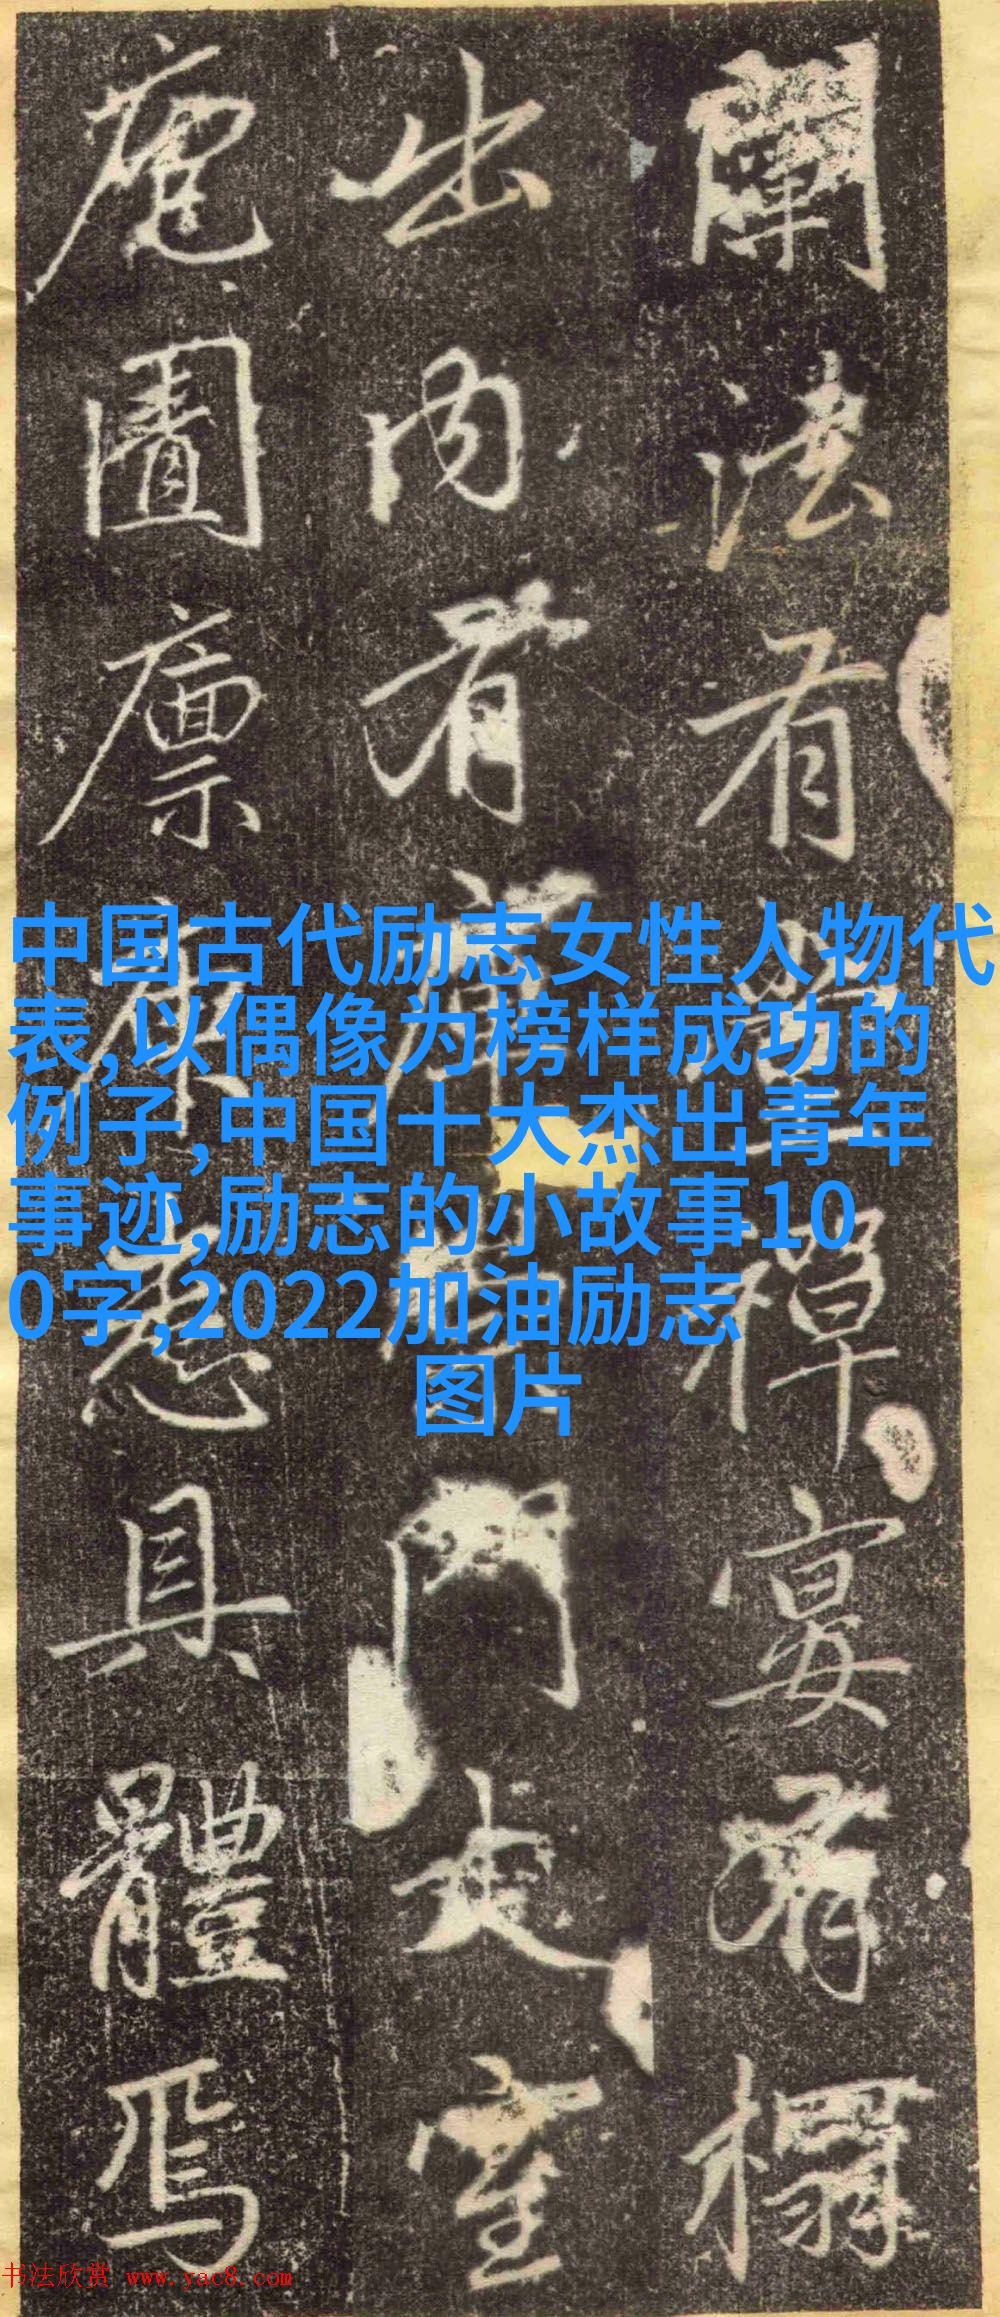 闡法有禪宴有榻
出内有門室
庖圊廩悉具體焉
中国古代励志女性人物代
表,以偶像为榜样成功的
例子,中国十大杰出青年
事迹,励志的小故事10
0字,2022加油励志
图片
书法欣赏 www.yac8.com